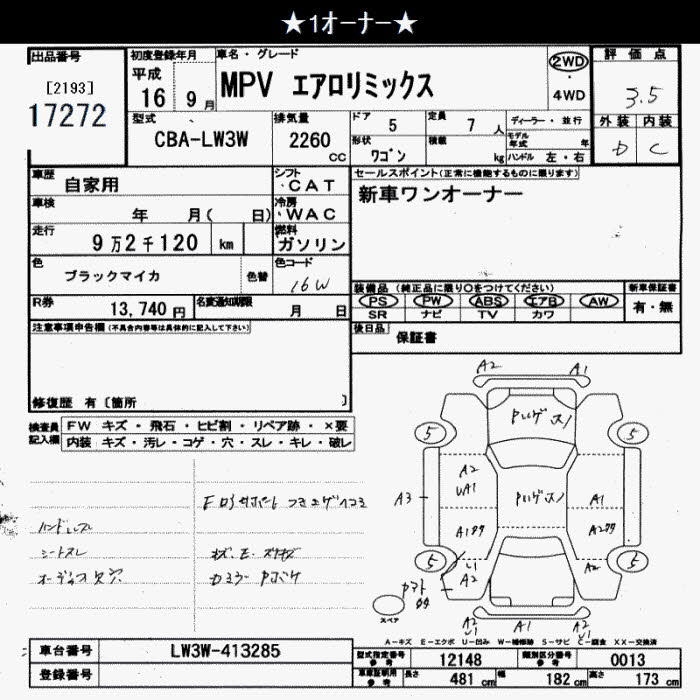 ★1オーナー★
出品番号
[2193]
17272
初度登録年月
平成
16 9月
車名・グレード
MPV エアロリミックス
2WD
・
4WD
評価点
3.5
外装 内装
D C
型式
CBA-LW3W
排気量
2260
cc
ドア 5
定員 7人
形状 ワゴン
積載 kg
ディーラー・並行
モデル年式 年
ハンドル 左・右
車歴
自家用
シフト
・CAT
車検
年 月( 日)
冷房
・WAC
走行
9万2千120 km
燃料
ガソリン
色
ブラックマイカ
色替
色コード
16W
R券
13,740円
名変通知期限
月 日
セールスポイント(正常に機能するものに限ります)
新車ワンオーナー
装備品 (純正品に限り○をつけてください)
PS PW ABS エアB AW
SR ナビ TV カワ
新車保証書
有・無
後日品
保証書
注意事項申告欄(不具合内容等は具体的に記入して下さい)
修復歴 有〔箇所 〕
検査員記入欄
FW キズ・飛石・ヒビ割・リペア跡・×要
内装 キズ・汚レ・コゲ・穴・スレ・キレ・破レ
ハンドルスレ
シートスレ
オーディオ欠穴
A2 A1
5 5
A2
A3
A1
5 5
A2
A2
スペア
A-キズ E-エクボ U-凹み W-補修跡 S-サビ C-腐食 XX-交換済
車台番号
LW3W-413285
登録番号
型式指定番号 参考 12148
類別区分番号 参考 0013
車庫証明用 参考 長さ 481cm 幅 182cm 高さ 173cm